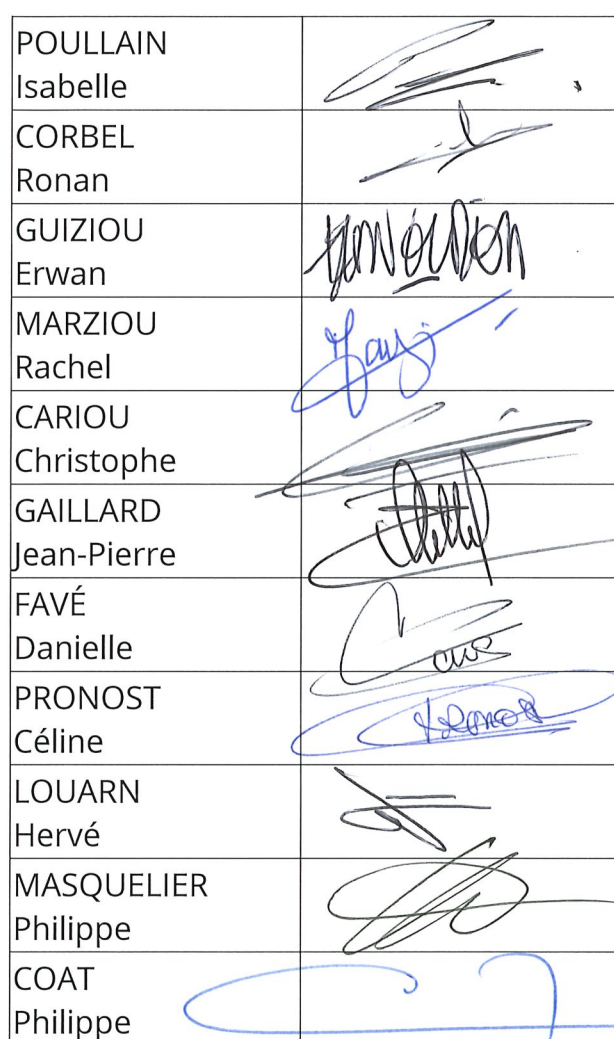 POULLAIN
Isabelle
CORBEL
Ronan
GUIZIOU
Erwan
MARZIOU
Rachel
CARIOU
Christophe
GAILLARD
Jean-Pierre
FAVÉ
Danielle
PRONOST
Céline
LOUARN
Hervé
MASQUELIER
Philippe
COAT
Philippe